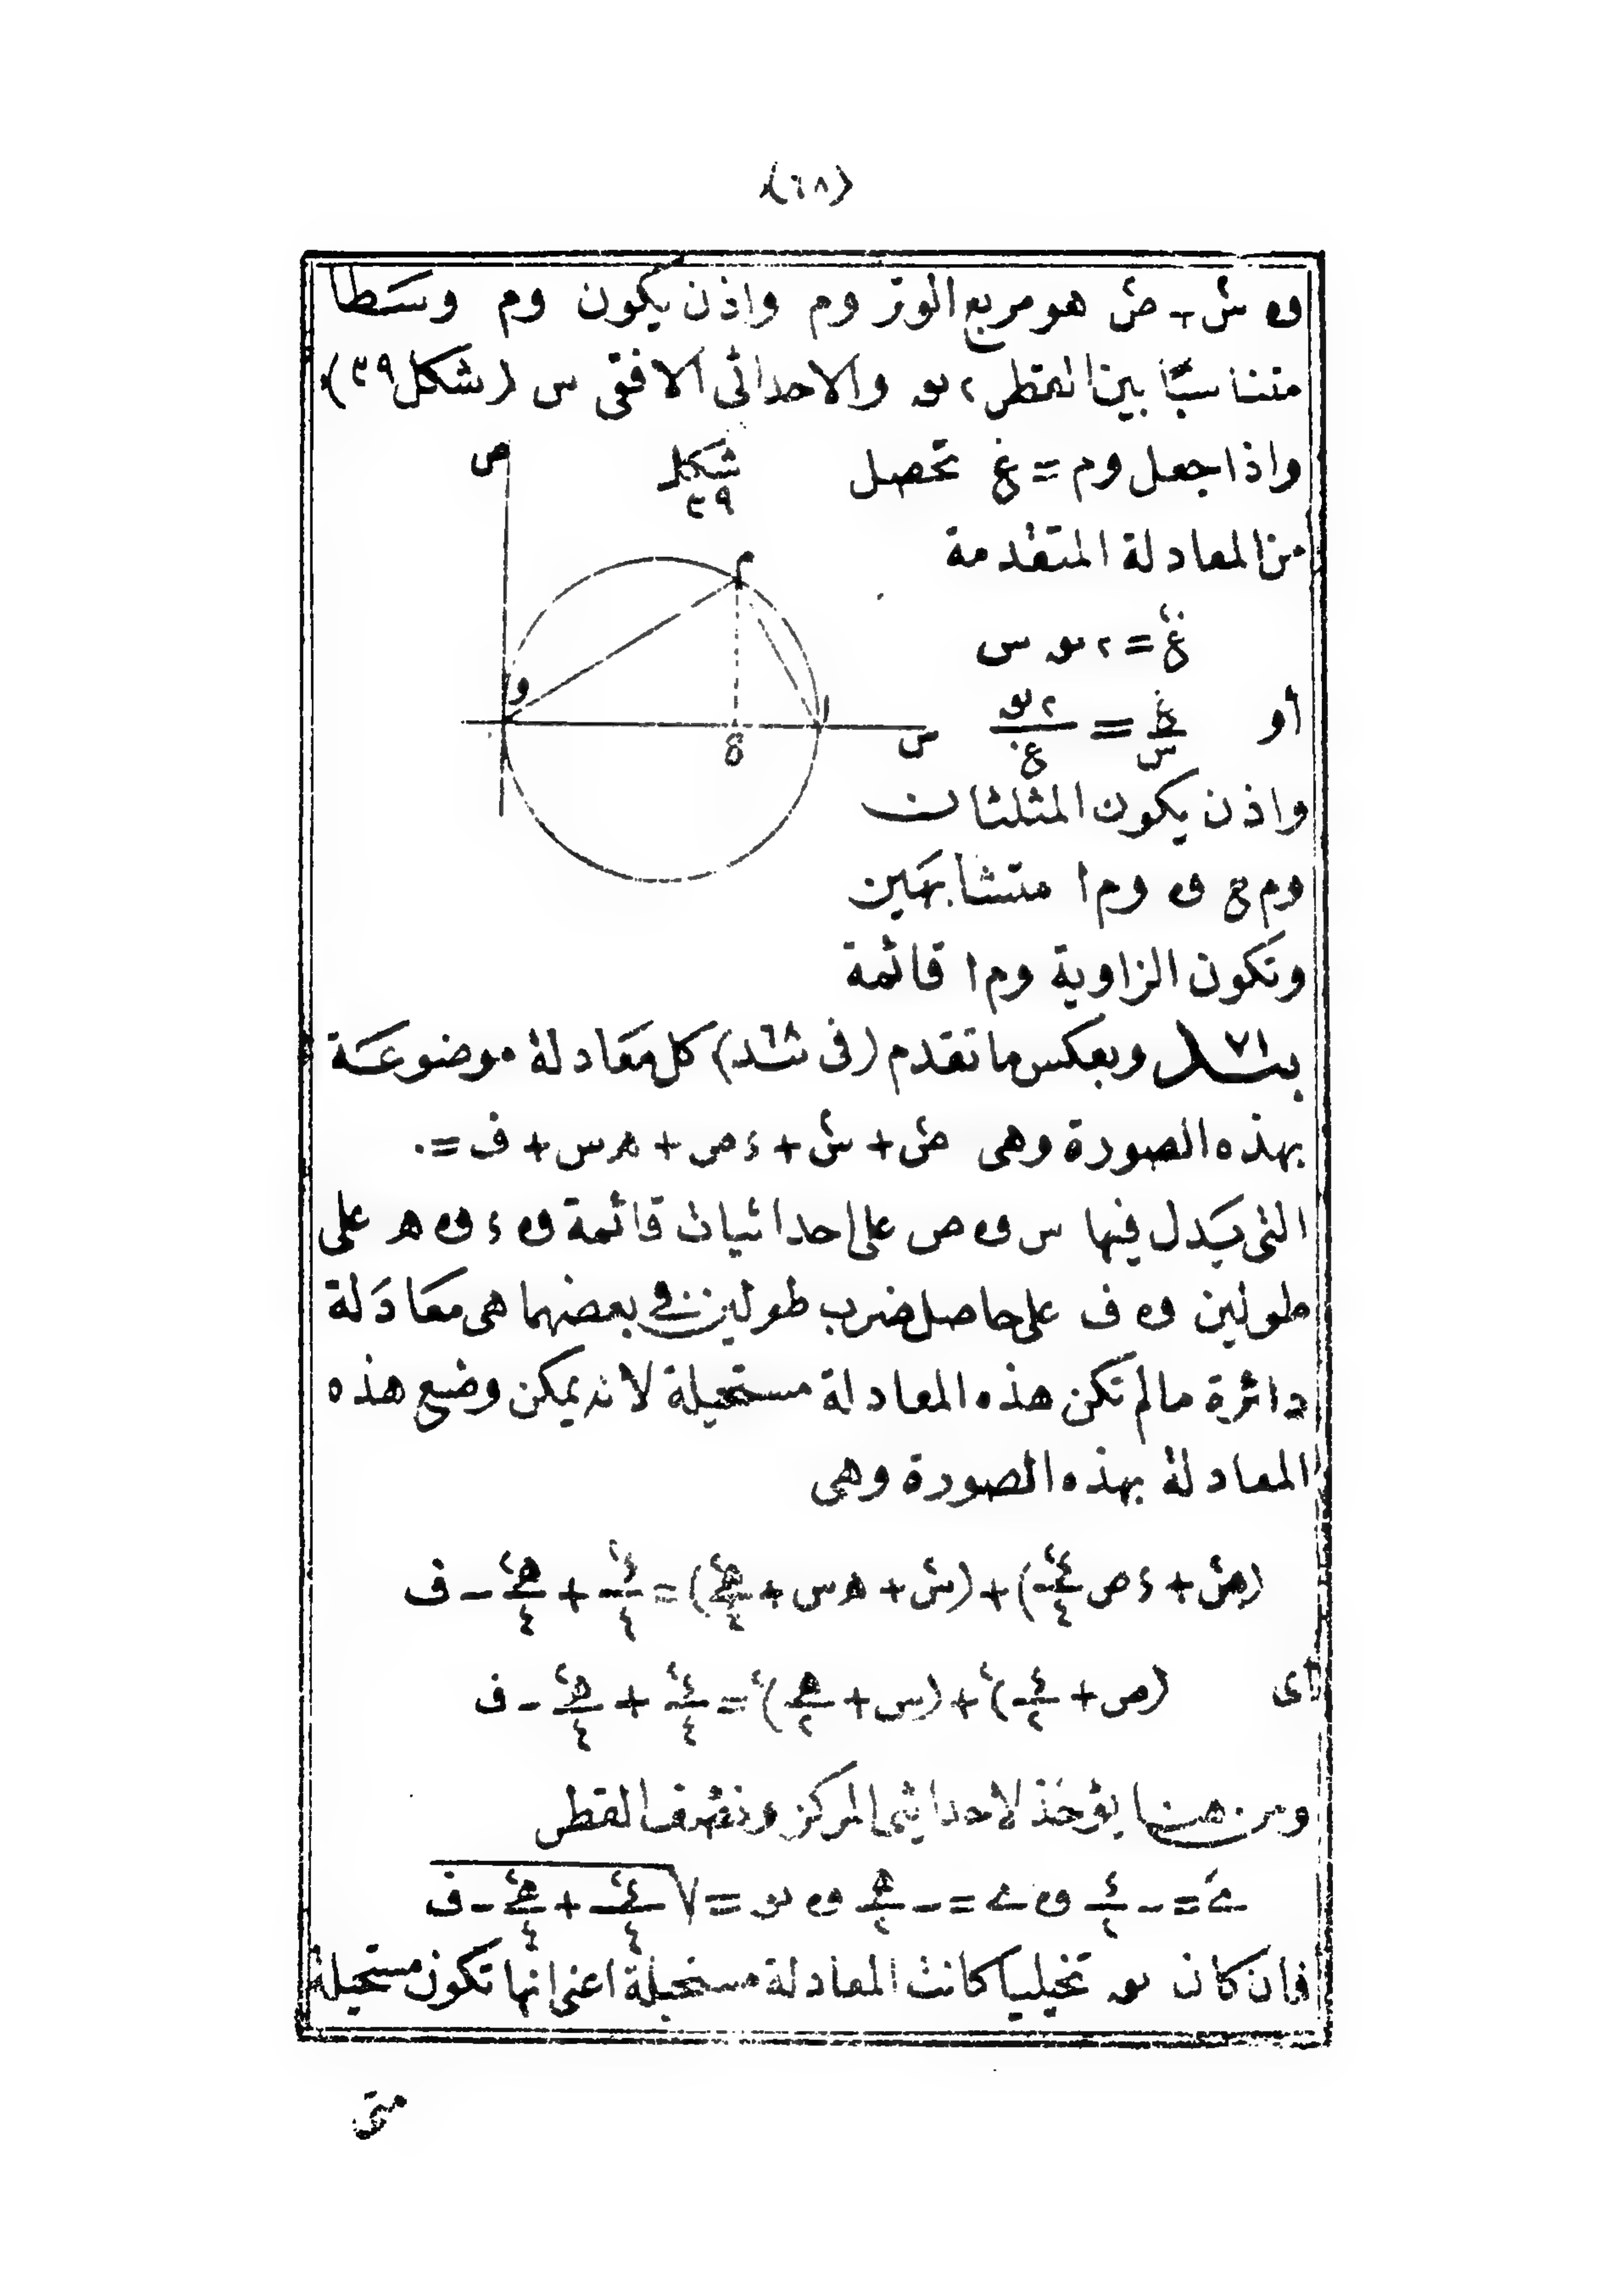 (٦٨)
و س٢ + ص٢ هو مربع الوتر وم واذن يكون وم وسطا
متناسبا بين القطر ٢ نو والاحداثى الافقى س (شكل ٣٩)
واذا جعل وم = غ تحصل
شكل ٣٩
ص
من المعادلة المتقدمة
م
غ٢ = ٢ نو س
و
ا
أو غ/س = ٢ نو/غ
س
ع
واذن يكون المثلثان
وم ع و وم ا متشابهين
وتكون الزاوية وم ا قائمة
بند ٧١ وبعكس ما تقدم (فى بند ٦٨) كل معادلة موضوعة
بهذه الصورة وهى ص٢ + س٢ + ء ص + ه س + ف = ٠
التى يدل فيها س و ص على احداثيات قائمة و ء و ه على
طولين و ف على حاصل ضرب طولين فى بعضهما هى معادلة
دائرة مالم تكن هذه المعادلة مستحيلة لانه يمكن وضع هذه
المعادلة بهذه الصورة وهى
(ص٢ + ء ص ء٢/٤) + (س٢ + ه س + ه٢/٤) = ء٢/٤ + ه٢/٤ - ف
أى (ص + ء/٢)٢ + (س + ه/٢)٢ = ء٢/٤ + ه٢/٤ - ف
ومن هنا يؤخذ لاحداثيى المركز ونصف القطر
= - ء/٢ و = - ه/٢ و نو = √(ء٢/٤ + ه٢/٤ - ف)
فان كان نو تخيليا كانت المعادلة مستحيلة اعنى انها تكون مستحيلة
متى